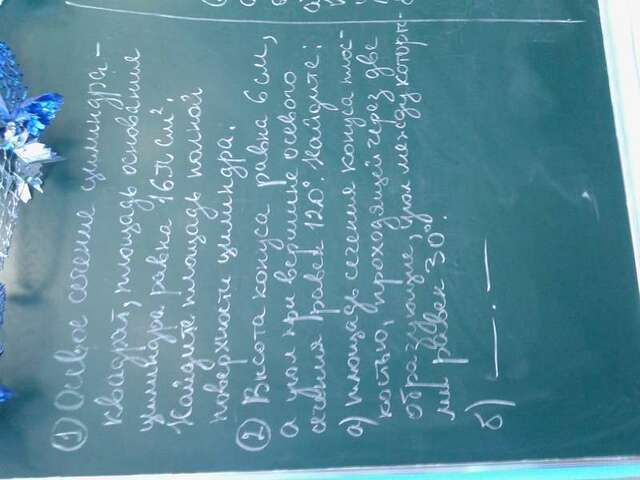 1) Осевое сечение цилиндра -
квадрат, площадь основания
цилиндра равна 16π см².
Найдите площадь полной
поверхности цилиндра.
2) Высота конуса равна 6 см,
а угол при вершине осевого
сечения равен 120°. Найдите:
а) площадь сечения конуса плос-
костью, проходящей через две
образующие, угол между которы-
ми равен 30°.
б) — . —